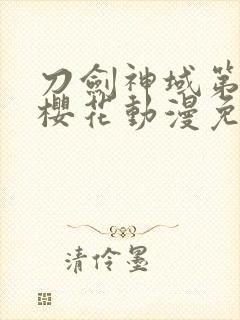 刀劍神域第
櫻花動漫免
清伶墨